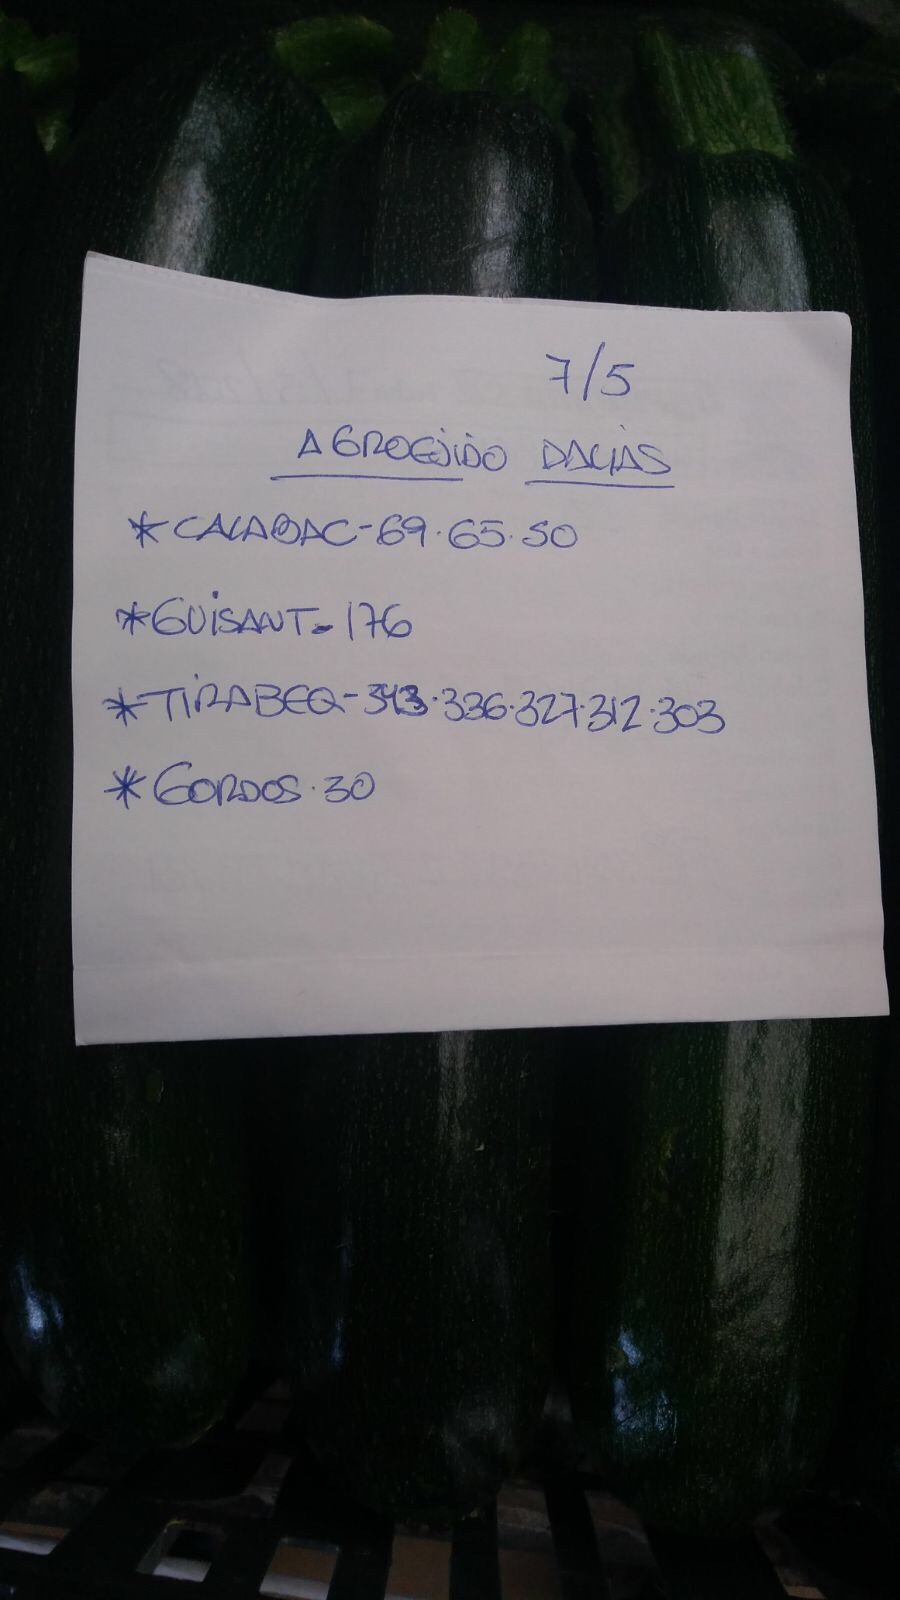 7/5
AGROEJIDO DALIAS
*CALABAC-69.65.50
*GUISANT-176
*TIRABEQ-343.336.327.312.303
*GORDOS.30